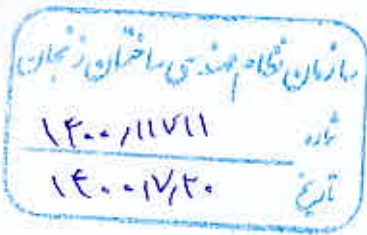 سازمان نظام مهندسی ساختمان زنجان
شماره ۱۴۰۰/۱۱۷۱۱
تاریخ ۱۴۰۰/۷/۲۰